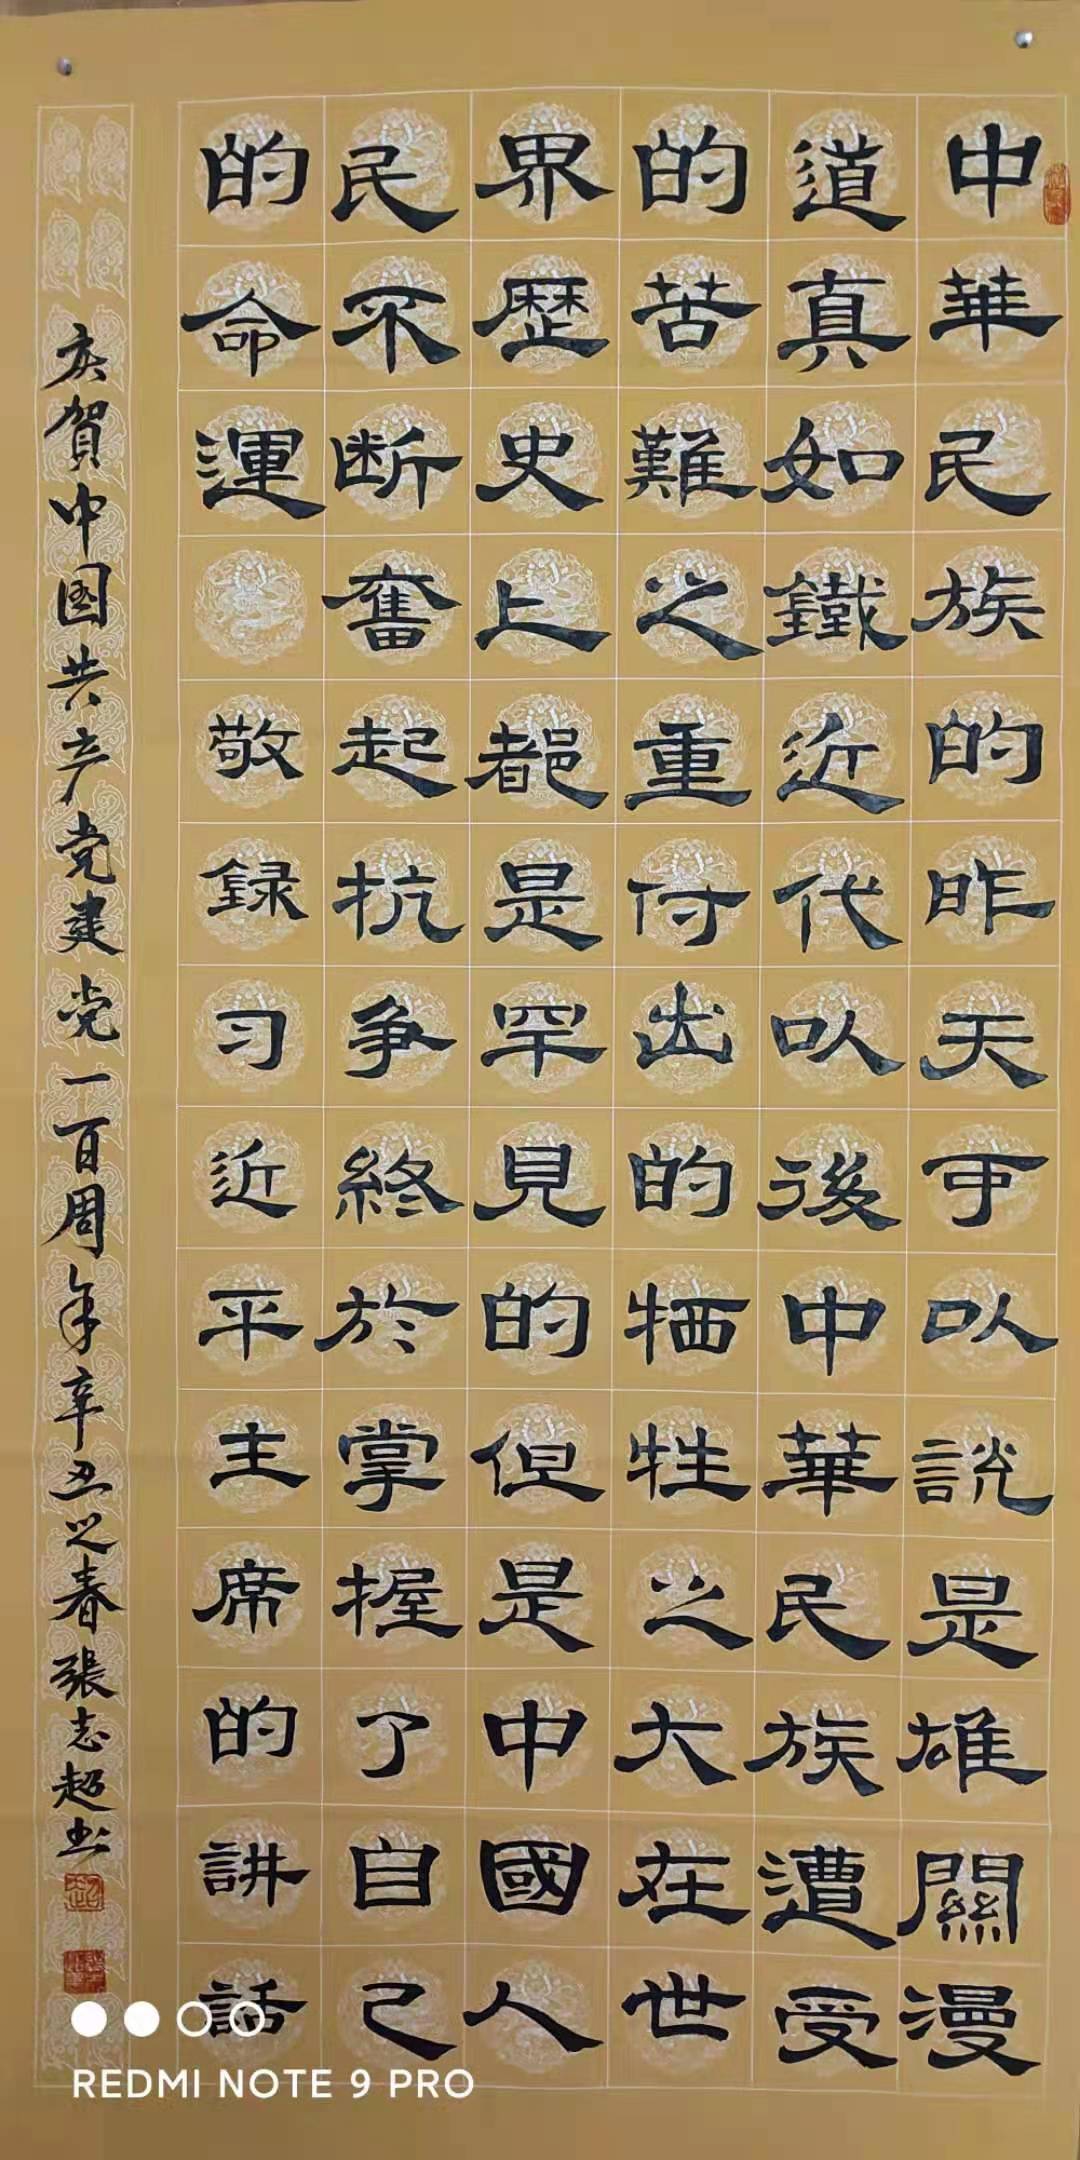 中華民族的昨天可以説是雄關漫
道真如鐵近代以後中華民族遭受
的苦難之重付出的牺牲之大在世
界歷史上都是罕見的但是中國人
民不断奮起抗争終於掌握了自己
的命運 敬録习近平主席的講話
庆賀中国共产党建党一百周年辛丑之春張志超书
REDMI NOTE 9 PRO